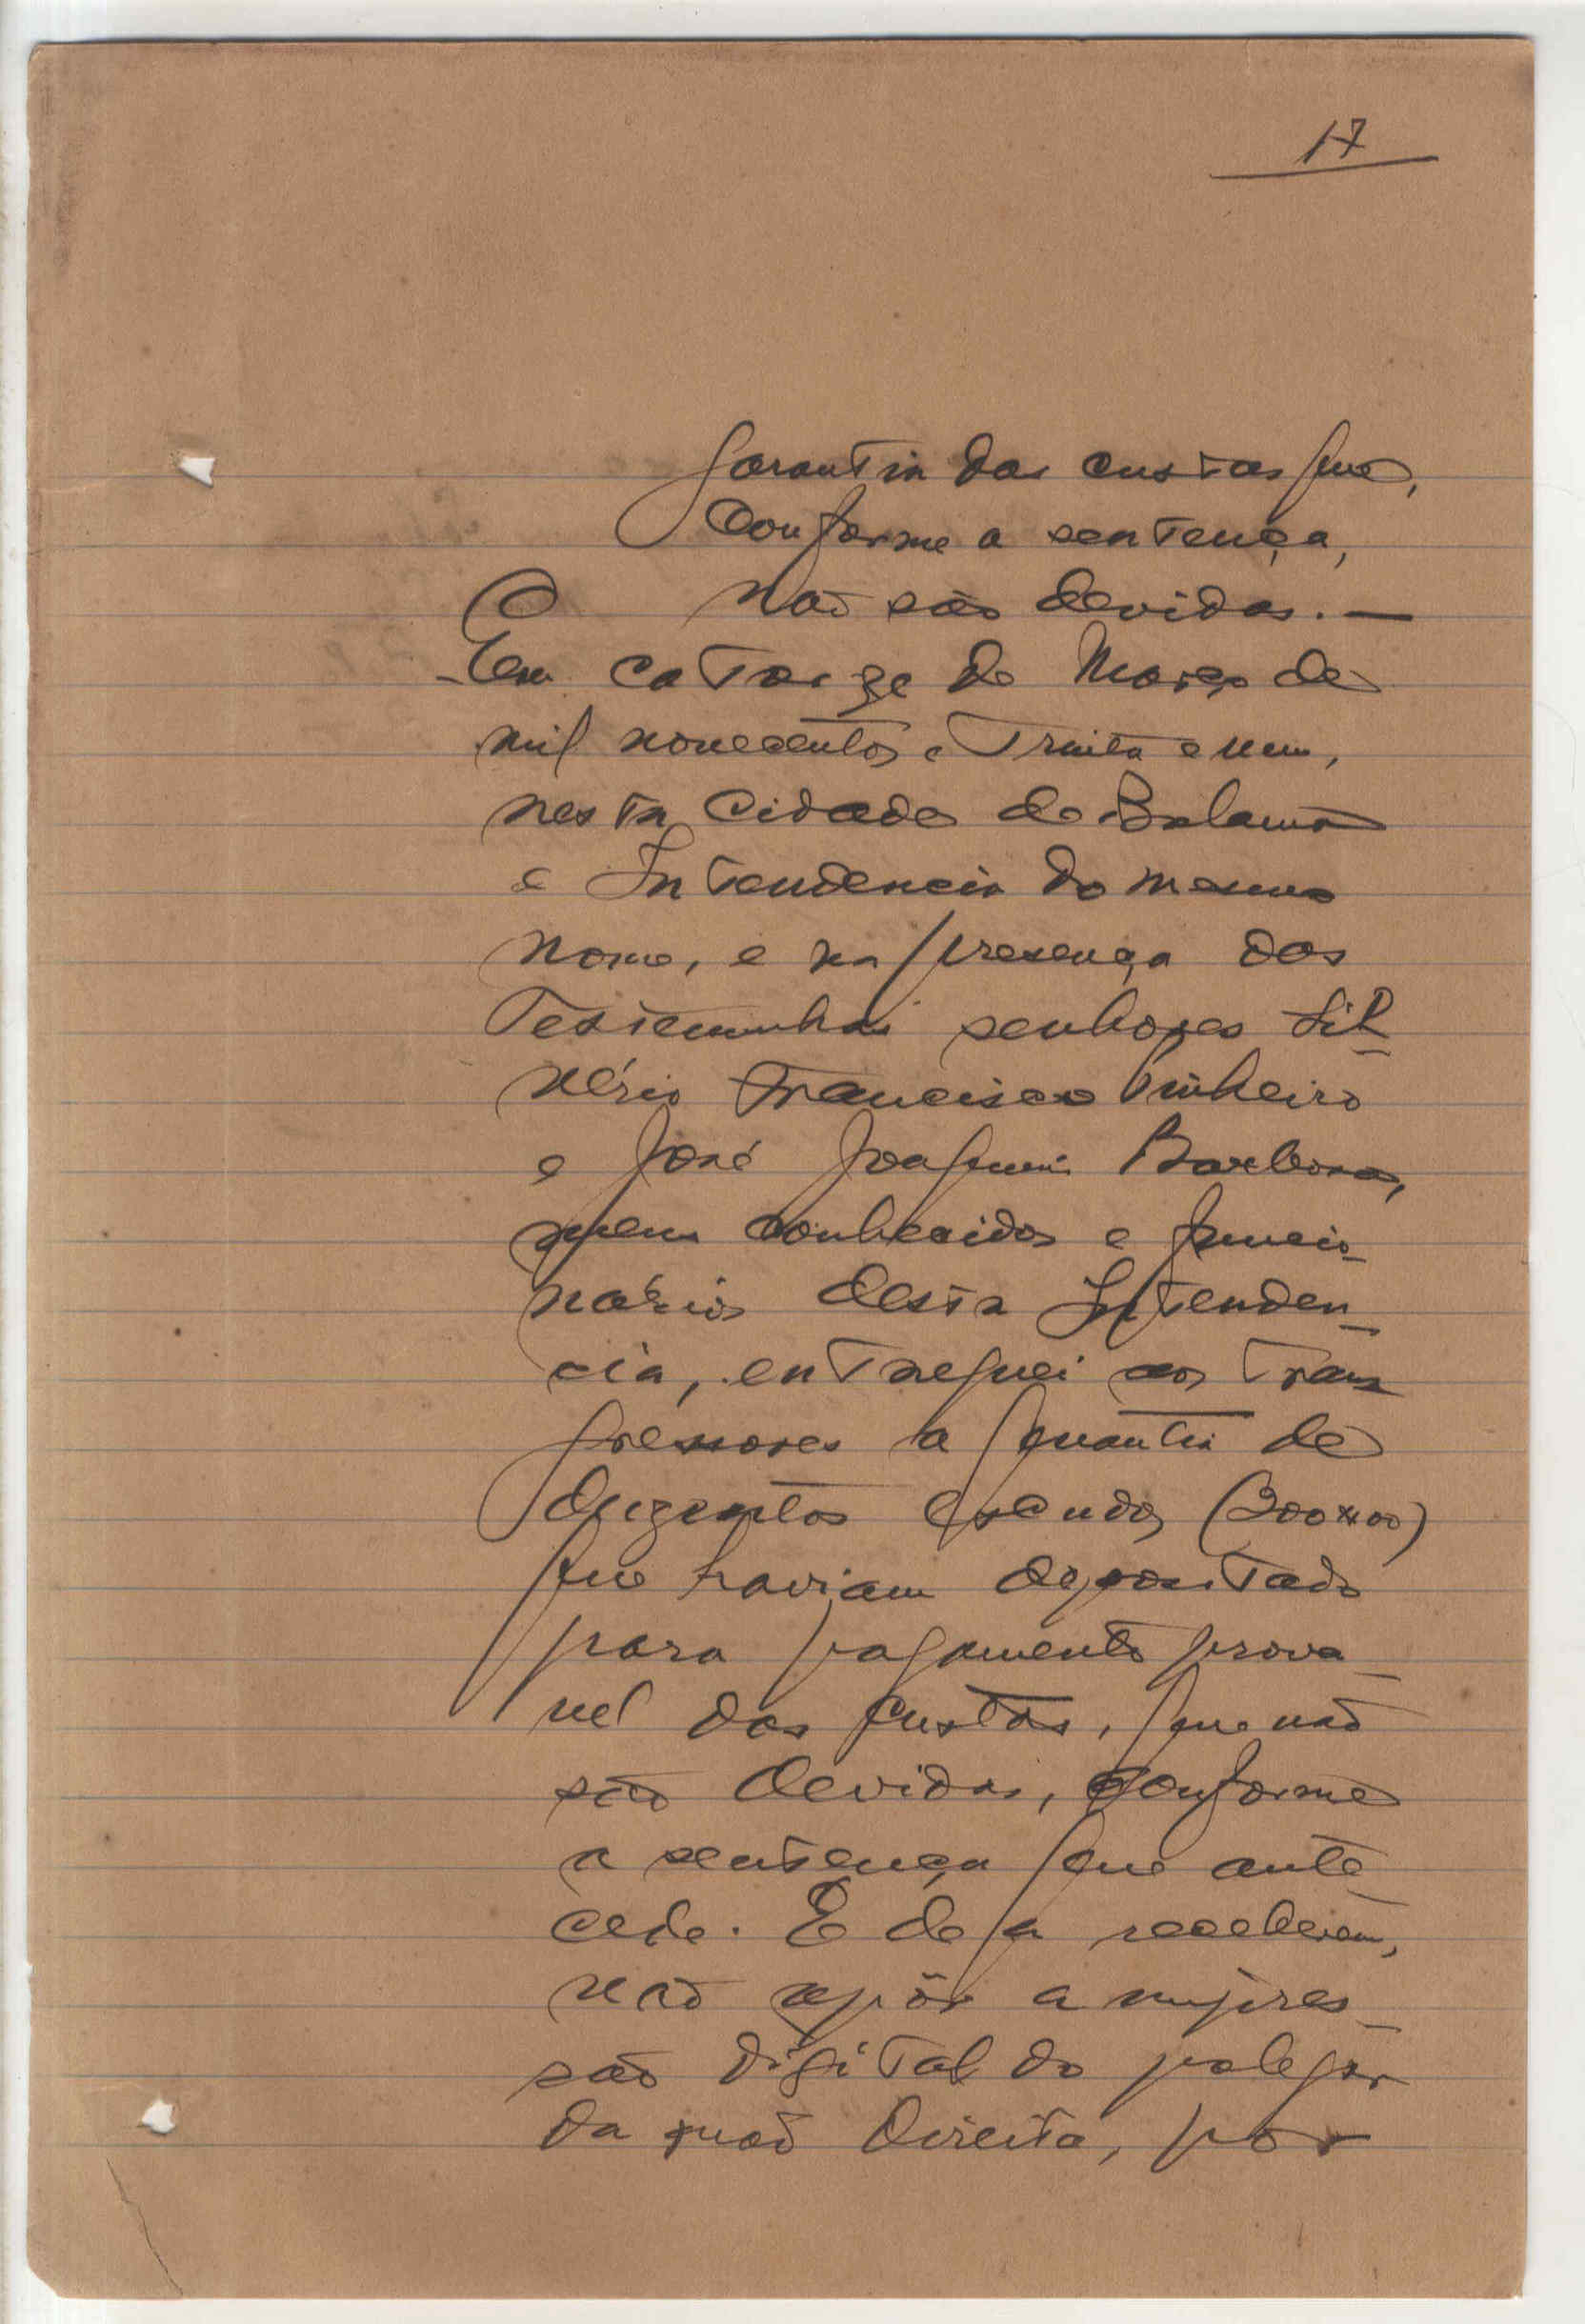 17
garantia das custas que,
conforme a sentença,
não são devidas. —
Em catorze de Março de
mil novecentos e trinta e um,
nesta cidade de Bolama
e Intendencia do mesmo
nome, e na presença das
testemunhas senhores Sil-
vério Francisco Pinheiro
e José Joaquim Barbosa,
conhecidos e funcio-
nários desta Intenden-
cia, entreguei aos trans
gressores a quantia de
duzentos escudos (200$00)
que haviam depositado
para pagamento prova-
vel das custas, que não
são devidas, conforme
a sentença que ante-
cede. E de a receberem,
vão apôr a impres-
são digital do polegar
da mão direita, por